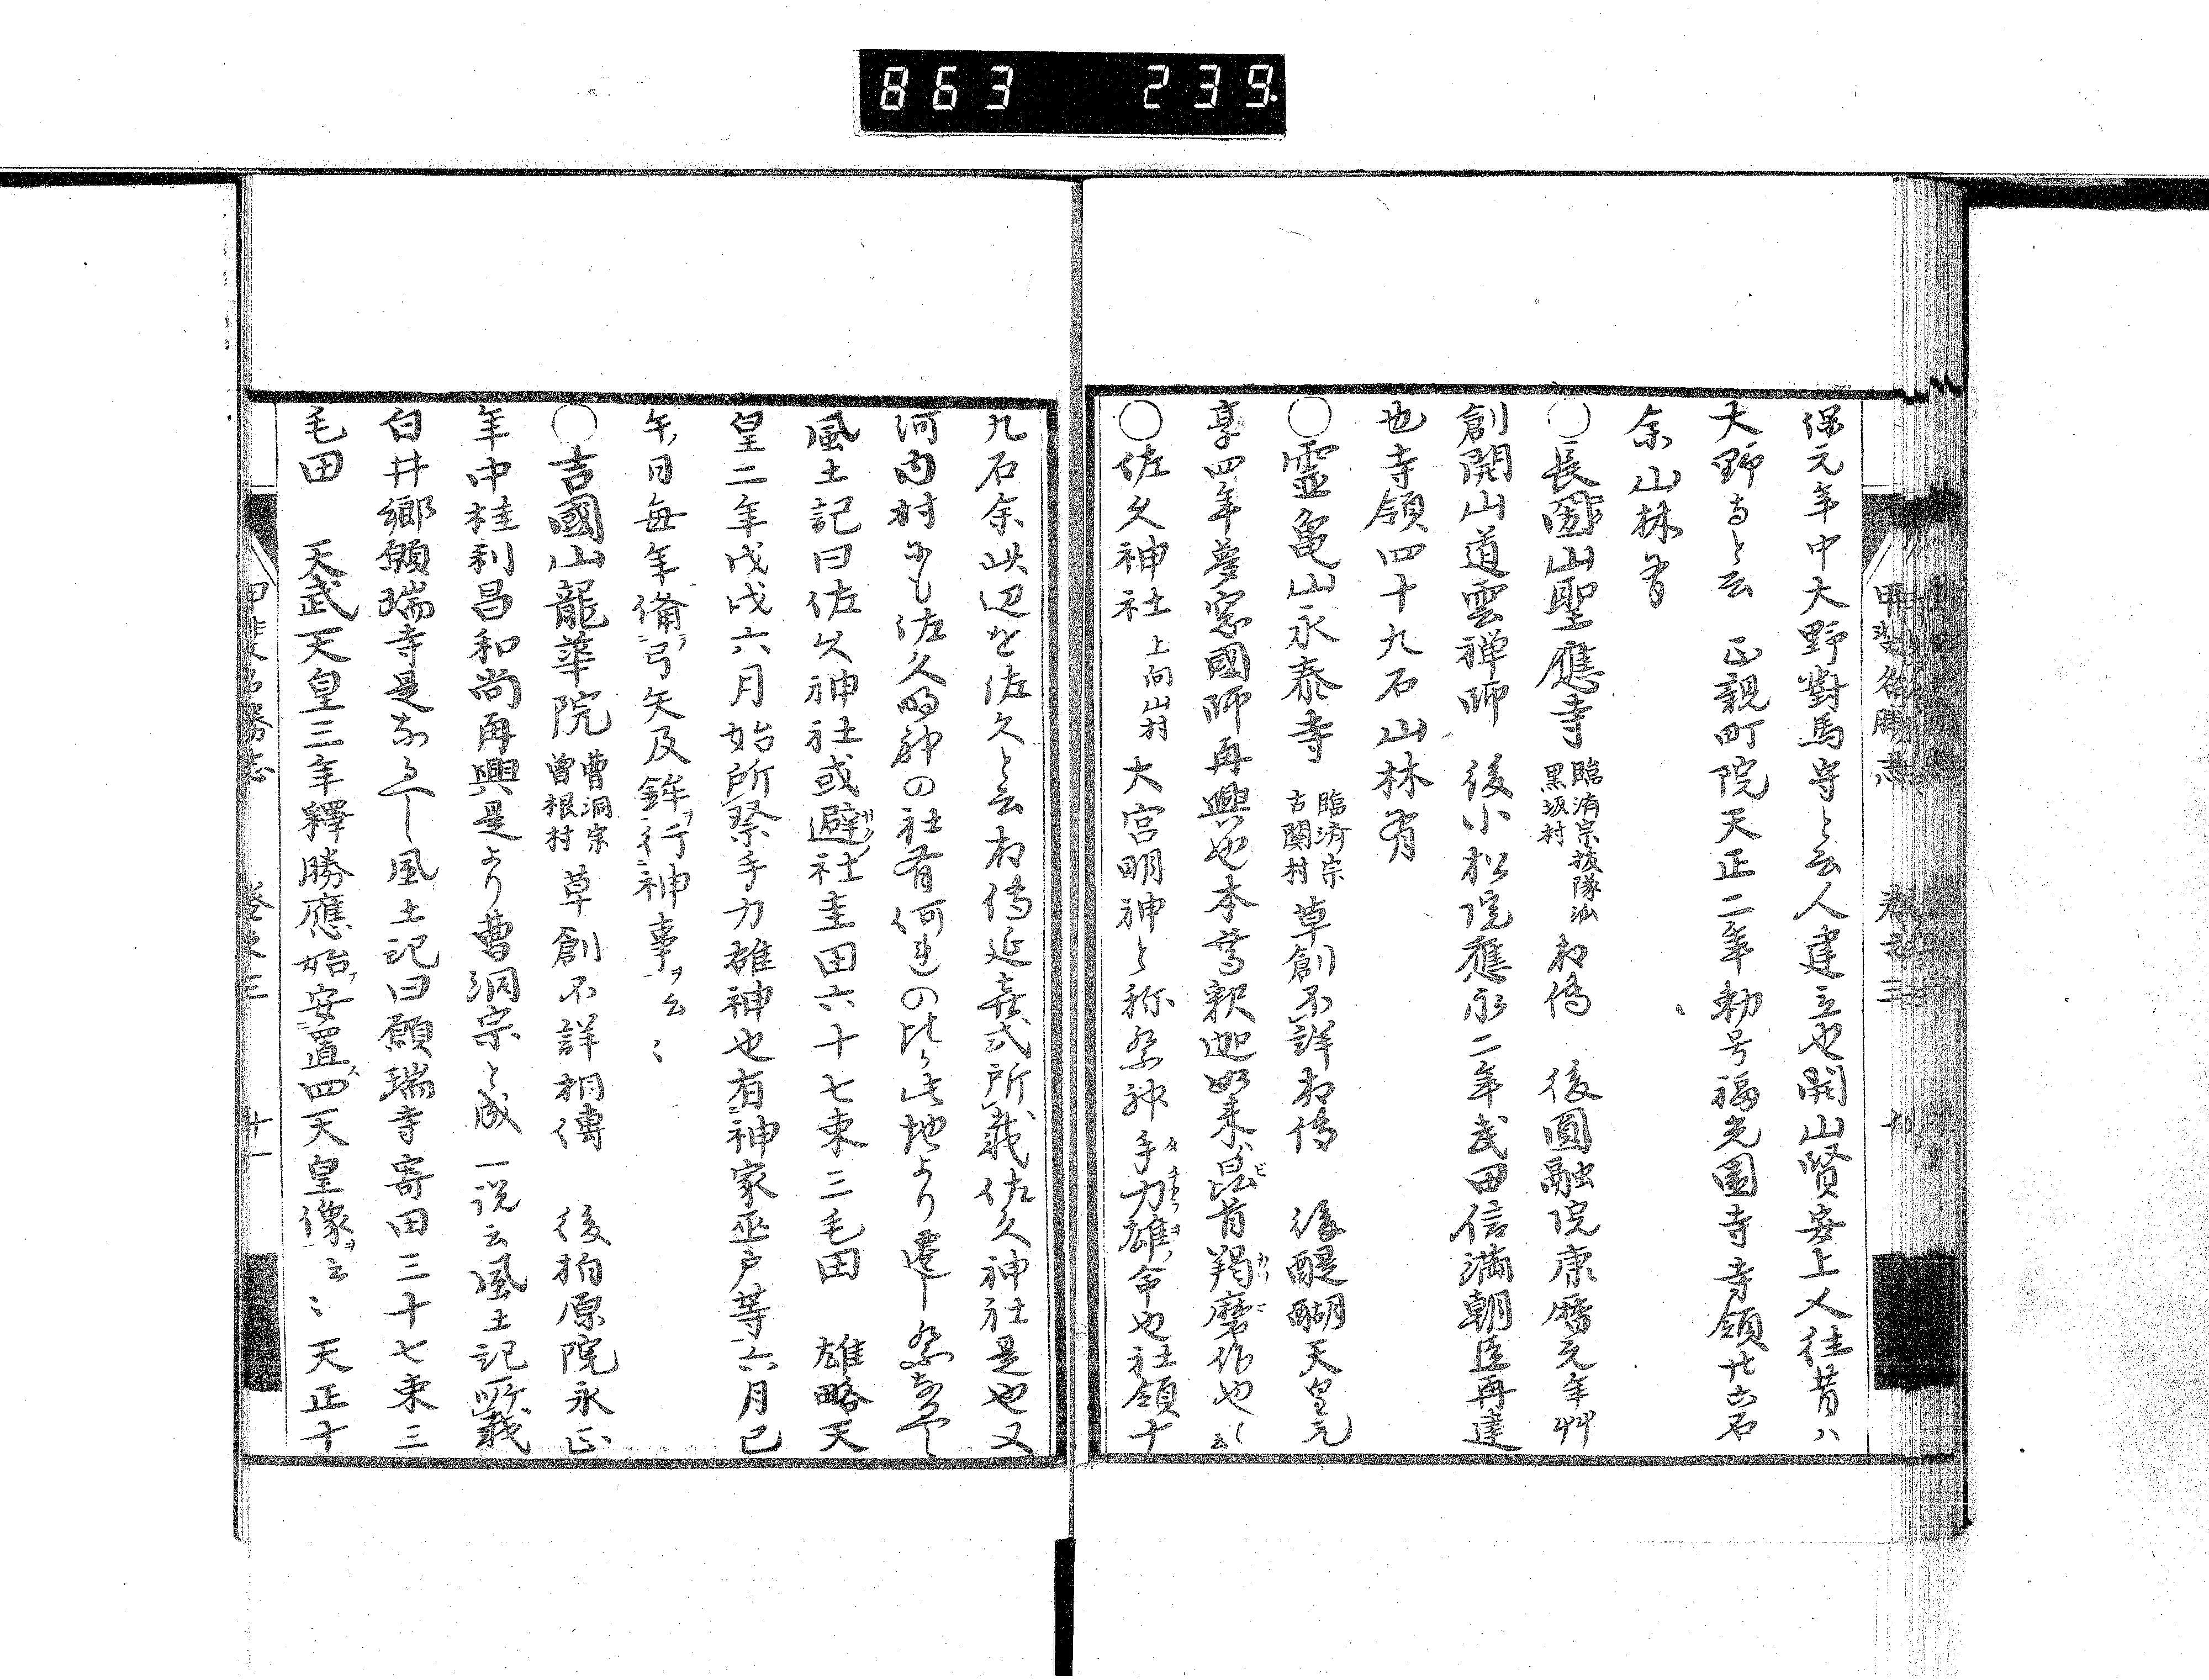 863 239.
甲斐名勝志 卷之三 十
保元年中大野對馬守と云人建立也開山賢安上人往昔ハ
大野寺と云 正親町院天正二年勅号福光園寺寺領廿六石
余山林有
○長國山聖應寺 臨済宗抜隊派 黒坂村 相傳 後圓融院康暦元年艸
創開山道雲禅師 後小松院應永二年武田信満朝臣再建
也寺領四十九石山林有
○霊亀山永泰寺 臨済宗 古関村 草創不詳相傳 後醍醐天皇元
享四年夢窓國師再興也本尊釈迦如来毘首羯磨作也云〱
○佐久神社 上向山村 大宮明神と称祭神手力雄命也社領十
九石余此辺を佐久と云相傳延喜式所載佐久神社是也又
河内村にも佐久明神の社有何連の比ら此地より遷し祭ならむ
風土記曰佐久神社或避社圭田六十七束三毛田 雄略天
皇二年戊戌六月始所祭手力雄神也有神家巫戸等六月巳
午日毎年備弓矢及鉾行神事云〻
○吉國山龍華院 曹洞宗 曽根村 草創不詳相傳 後柏原院永正
年中桂利昌和尚再興是より曹洞宗と成 一説云風土記所載
白井郷願瑞寺是なるへし風土記曰願瑞寺寄田三十七束三
毛田 天武天皇三年釋勝應始安置四天皇像云〻天正十
甲斐名勝志 卷之三 十一